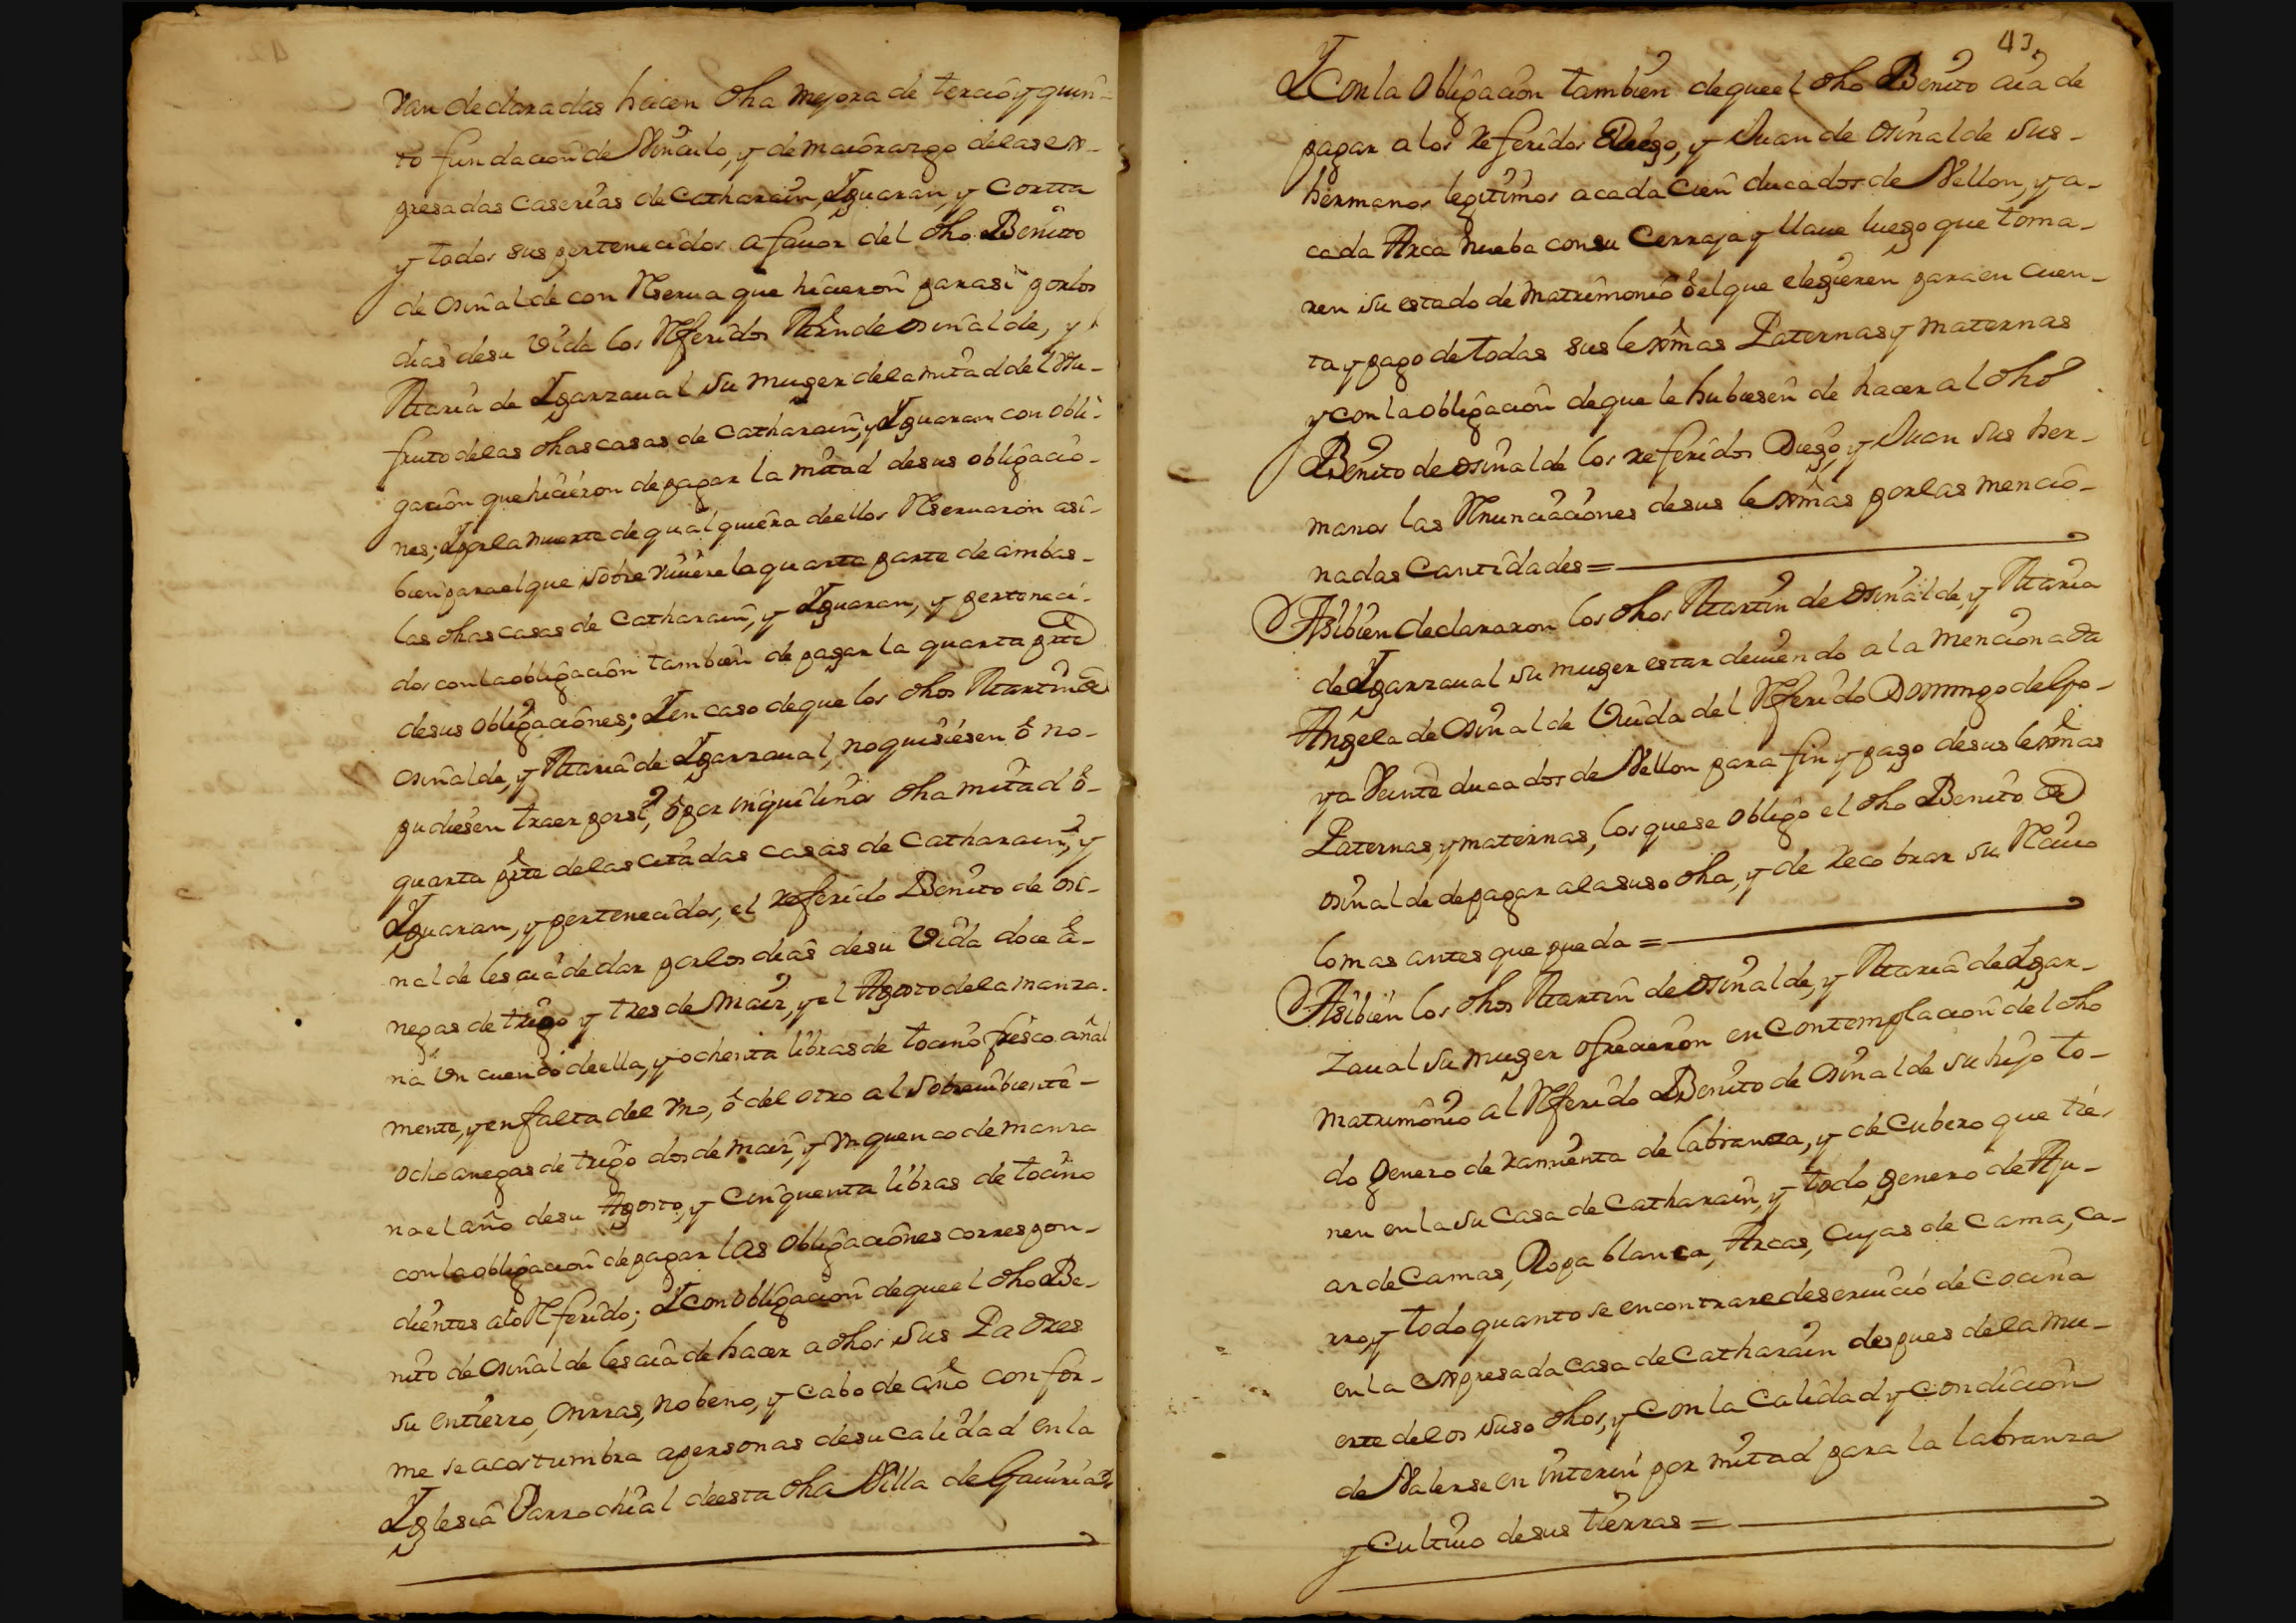 van declaradas hacen dha mejora de tercio y quin-
to fundacion de Vinculo, y de maiorazgo delas ex-
presadas caserias de Catharain, Yguaran, y Cortta
y todos sus pertenecidos a favor del dho Benitto
de osinalde con Reserva que hicieron para si por los
dias desu Vida los Referidos Mrn de osinalde, y
Maria de Ygarzaual su muger dela mitad del Usu-
fruto delas dhas casas de Catharain, y Yguaran con obli-
gacion que hicieron de pagar la mitad desus obligacio-
nes; Y por la muerte de qualquiera de ellos Reservaron asi-
bien para el que sobre viviere la quarta parte de ambas-
las dhas casas de Catharain, y Yguaran, y perteneci-
dos con la obligacion tambien de pagar la quarta prte
desus obligaciones; Y en caso de que los dhos Martin de
osinalde, y Maria de Ygarzaual, no quisiesen ô no-
pudiesen traer por si, ô por inquilinos dha mitad ô-
quarta prte delas citadas casas de Catharain, y
Yguaran, y pertenecidos, el referido Benito de osi-
nalde les aia de dar por los dias desu Vida doce a-
negas de trigo y tres de Maiz, y el Agosto dela manza-
na Un cuenco de ella, y ochenta libras de tocino fresco añal
mente, y en falta del Vno, ô del otro al sobreuibiente-
ocho anegas de trigo dos de maiz, y Vn quenco de manza
na el año desu Agosto, y Cinquenta libras de tocino
con la obligacion de pagar las obligaciones correspon-
dientes alo Referido; Y con obligacion de que el dho Be-
nito de osinalde les aia de hacer a dhos sus Padres
su entierro, onrras, nobeno, y cabo de año confor-
me se acostumbra a personas desu calidad en la
Yglesia Parrochial de esta dha Villa de Gauiria
43
Y Con la obligacion tambien de que el dho Benito aia de
pagar a los referidos Diego, y Juan de osinalde sus-
hermanos legitimos a cada cien ducados de Vellon, y a-
cada Arca nueba con su Cerraja y llaue luego que toma-
ren su estado de Matrimonio ô el que eligieren para en cuen-
ta y pago de todas sus lexmas Paternas y maternas
y con la obligacion de que le hubiesen de hacer al dho
Benito de osinalde los referidos Diego, y Juan sus her-
manos las Renunciaciones desus lexmas por las mencio-
nadas Cantidades=
Asibien declararon los dhos Martin de osinalde, y Maria
de Ygarzaual su muger estar deuiendo a la mencionada
Angela de osinalde Viuda del Referido Domingo de Go-
ya Veinte ducados de Vellon para fin y pago desus lexmas
Paternas, y maternas, los que se obligo el dho Benito de
osinalde de pagar ala suso dha, y de recobrar su Reciuo
lo mas antes que pueda=
Asibien los dhos Martin de osinalde, y Maria de Ygar-
zaual su muger ofrecieron en contemplacion del dho
matrimonio al Referido Benito de osinalde su hijo to-
do genero de ramienta de labranza, y de Cubero que tie-
nen en la su casa de Catharain, y todo genero de Aju-
ar de Camas, Ropa blanca, Arcas, Cujas de cama, Ca-
rro, y todo quanto se encontrare de seruicio de cocina
en la expresada casa de Catharain despues dela mu-
erte de los suso dhos, y con la calidad y condicion
de Valerse en interin por mitad para la labranza
y Cultiuo desus tierras=